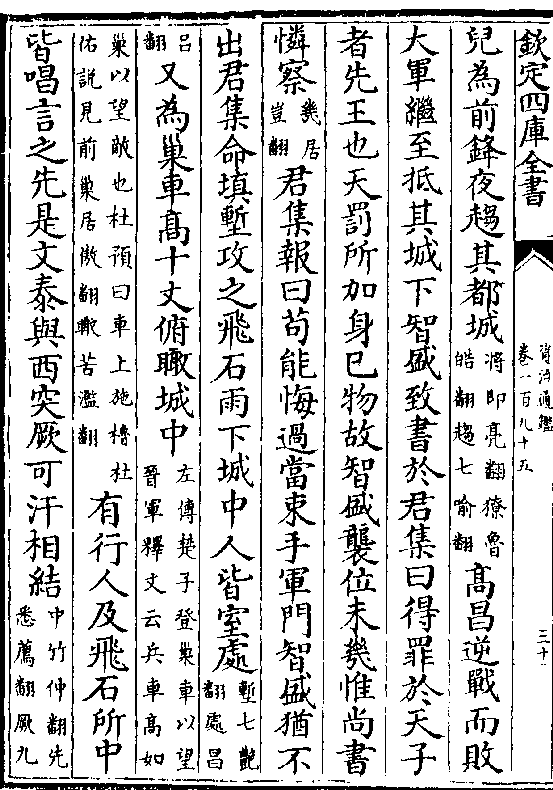 欽定四庫全書
資治通鑑
卷一百九十五
三十
兒為前鋒夜趨其都城將即亮翻獠魯皓翻趨七喻翻高昌逆戰而敗
大軍繼至抵其城下智盛致書於君集曰得罪於天子
者先王也天罰所加身已物故智盛襲位未幾惟尚書
憐察幾居豈翻君集報曰苟能悔過當束手軍門智盛猶不
出君集命填塹攻之飛石雨下城中人皆室處塹七艷翻處昌
呂翻又為巢車高十丈俯瞰城中左傳楚子登巢車以望晉軍釋文云兵車高如
巢以望敵也杜預曰車上施櫓杜佑說見前巢居傲翻瞰苦濫翻有行人及飛石所中
皆唱言之先是文泰與西突厥可汗相結中竹仲翻先悉薦翻厥九